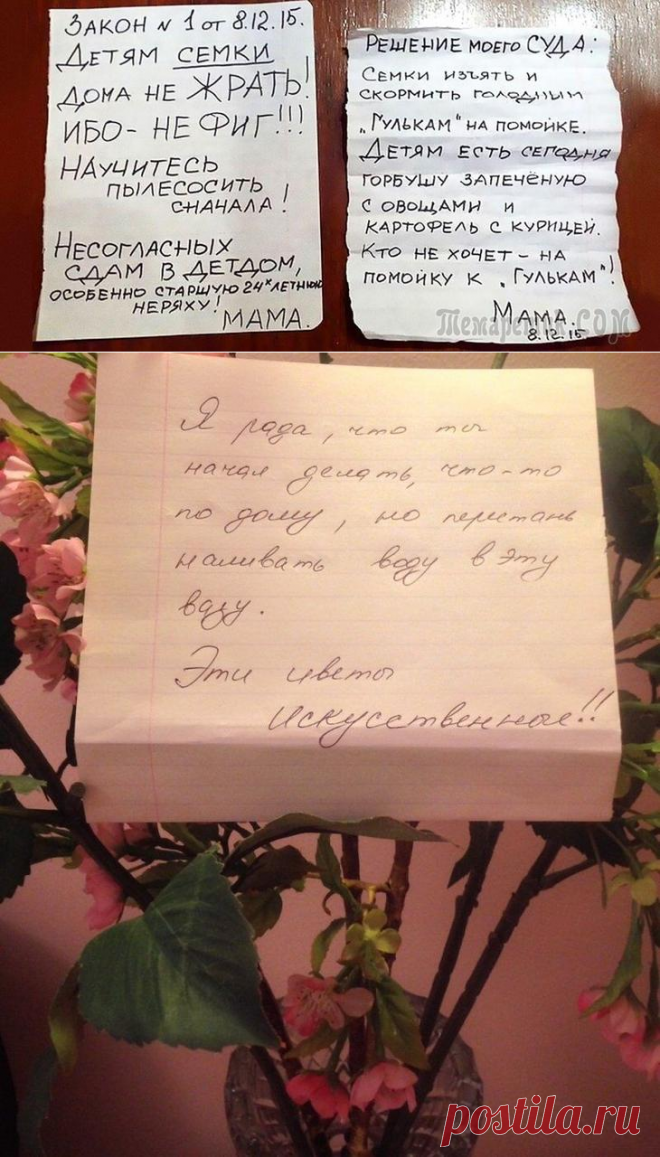 ЗАКОН N 1 ОТ 8.12.15.
ДЕТЯМ СЕМКИ
ДОМА НЕ ЖРАТЬ!
ИБО - НЕ ФИГ!!!
НАУЧИТЕСЬ
ПЫЛЕСОСИТЬ
СНАЧАЛА!
НЕСОГЛАСНЫХ
СДАМ В ДЕТДОМ,
ОСОБЕННО СТАРШУЮ 24х ЛЕТНЮЮ
НЕРЯХУ!
МАМА.
РЕШЕНИЕ МОЕГО СУДА:
СЕМКИ ИЗЪЯТЬ И
СКОРМИТЬ ГОЛОДНЫМ
„ГУЛЬКАМ" НА ПОМОЙКЕ.
ДЕТЯМ ЕСТЬ СЕГОДНЯ
ГОРБУШУ ЗАПЕЧЁНУЮ
С ОВОЩАМИ И
КАРТОФЕЛЬ С КУРИЦЕЙ.
КТО НЕ ХОЧЕТ - НА
ПОМОЙКУ К „ГУЛЬКАМ"!
МАМА.
8.12.15.
Темаретик.СОМ
Я рада, что ты
начал делать, что-то
по дому, но перестань
наливать воду в эту
вазу.
Эти цветы
искусственные!!
postila.ru